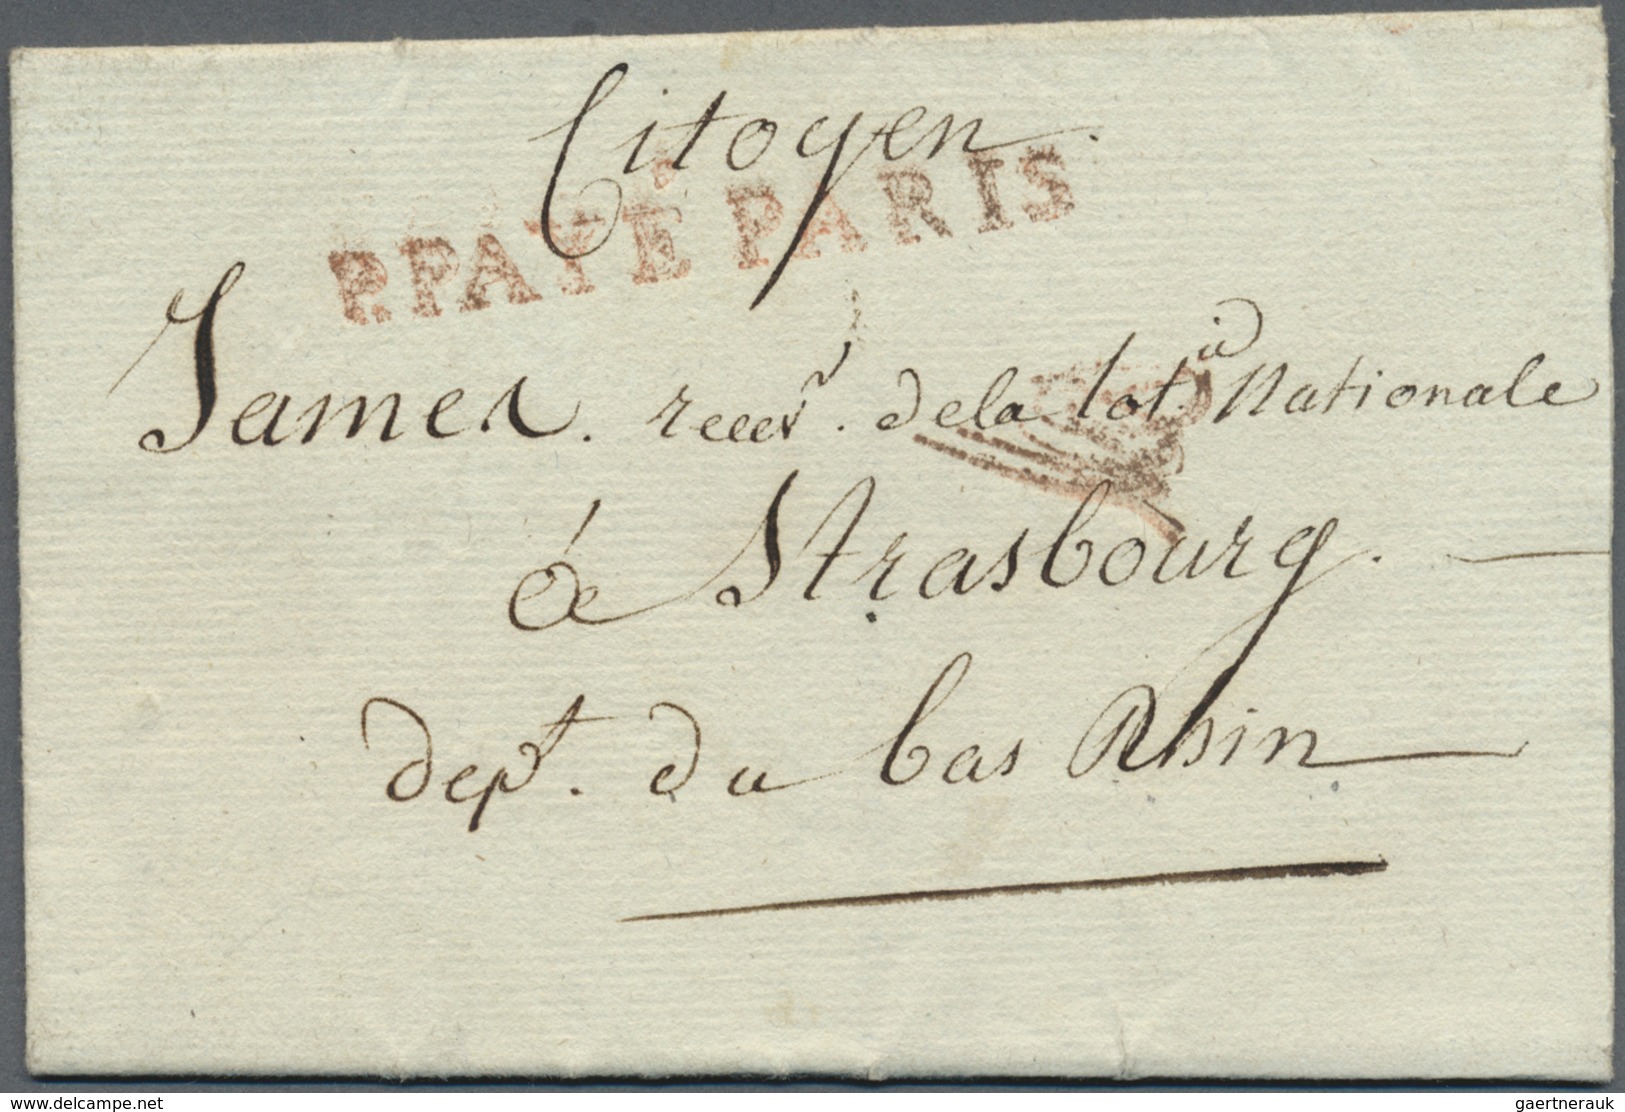 Citoyen.
P.PAYÉ PARIS
James. recev.r de la Lot.ie Nationale
à Strasbourg.
dep.t du bas Rhin
www.delcampe.net
gaertnerauk